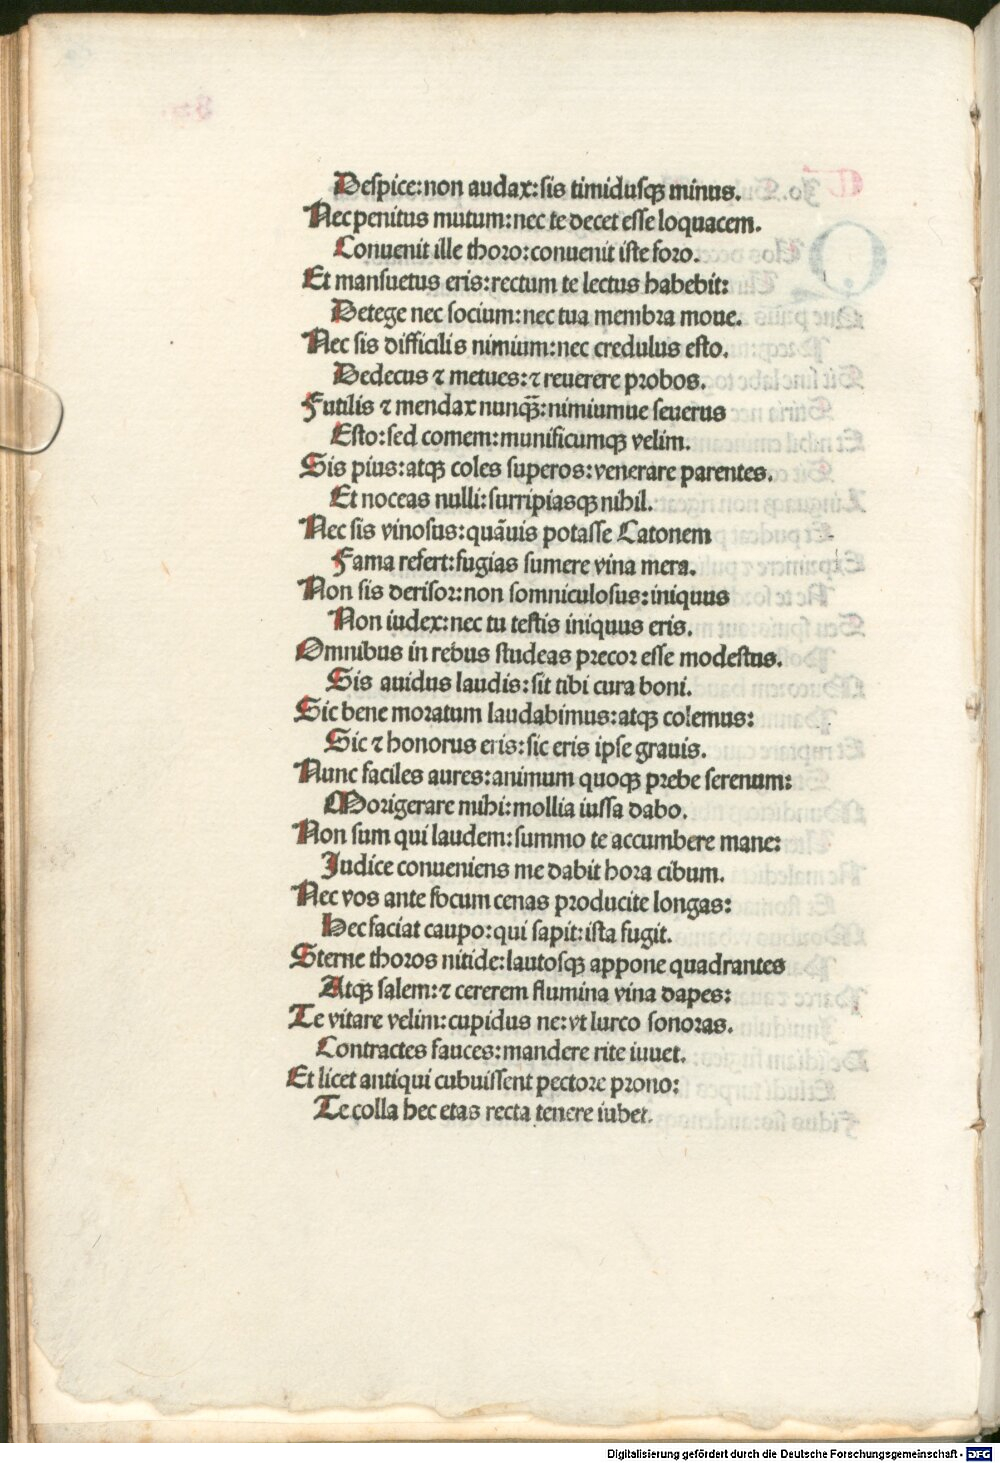 Despice: non audax: sis timidusqꝫ minus.
Nec penitus mutum: nec te decet esse loquacem.
Conuenit ille thoro: conuenit iste foro.
Et mansuetus eris: rectum te lectus habebit:
Detege nec socium: nec tua membra moue.
Nec sis difficilis nimium: nec credulus esto.
Dedecus ⁊ metues: ⁊ reuerere probos.
Futilis ⁊ mendax nunqꝫ̃: nimiumue seuerus
Esto: sed comem: munificumqꝫ velim.
Sis pius: atqꝫ coles superos: venerare parentes.
Et noceas nulli: surripiasqꝫ nihil.
Nec sis vinosus: quãuis potasse Catonem
Fama refert: fugias sumere vina mera.
Non sis derisor: non somniculosus: iniquus
Non iudex: nec tu testis iniquus eris.
Omnibus in rebus studeas precor esse modestus.
Sis auidus laudis: sit tibi cura boni.
Sic bene moratum laudabimus: atqꝫ colemus:
Sic ⁊ honorus eris: sic eris ipse grauis.
Nunc faciles aures: animum quoqꝫ prebe serenum:
Morigerare mihi: mollia iussa dabo.
Non sum qui laudem: summo te accumbere mane:
Judice conueniens me dabit hora cibum.
Nec vos ante focum cenas producite longas:
Hec faciat caupo: qui sapit: ista fugit.
Sterne thoros nitide: lautosqꝫ appone quadrantes
Atqꝫ salem: ⁊ cererem flumina vina dapes:
Te vitare velim: cupidus ne: vt lurco sonoras.
Contractes fauces: mandere rite iuuet.
Et licet antiqui cubuissent pectore prono:
Te colla hec etas recta tenere iubet.
Digitalisierung gefördert durch die Deutsche Forschungsgemeinschaft - DFG